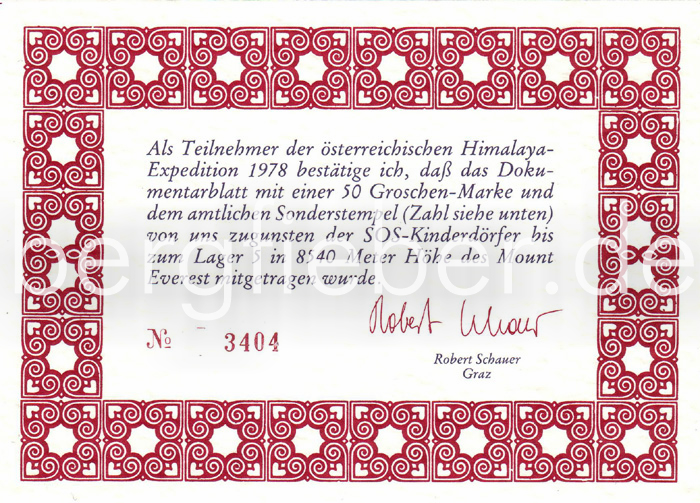 Als Teilnehmer der österreichischen Himalaya-
Expedition 1978 bestätige ich, daß das Doku-
mentarblatt mit einer 50 Groschen-Marke und
dem amtlichen Sonderstempel (Zahl siehe unten)
von uns zugunsten der SOS-Kinderdörfer bis
zum Lager 5 in 8540 Meter Höhe des Mount
Everest mitgetragen wurde.
bergfieber.de
Robert Schauer
№ 3404
Robert Schauer
Graz